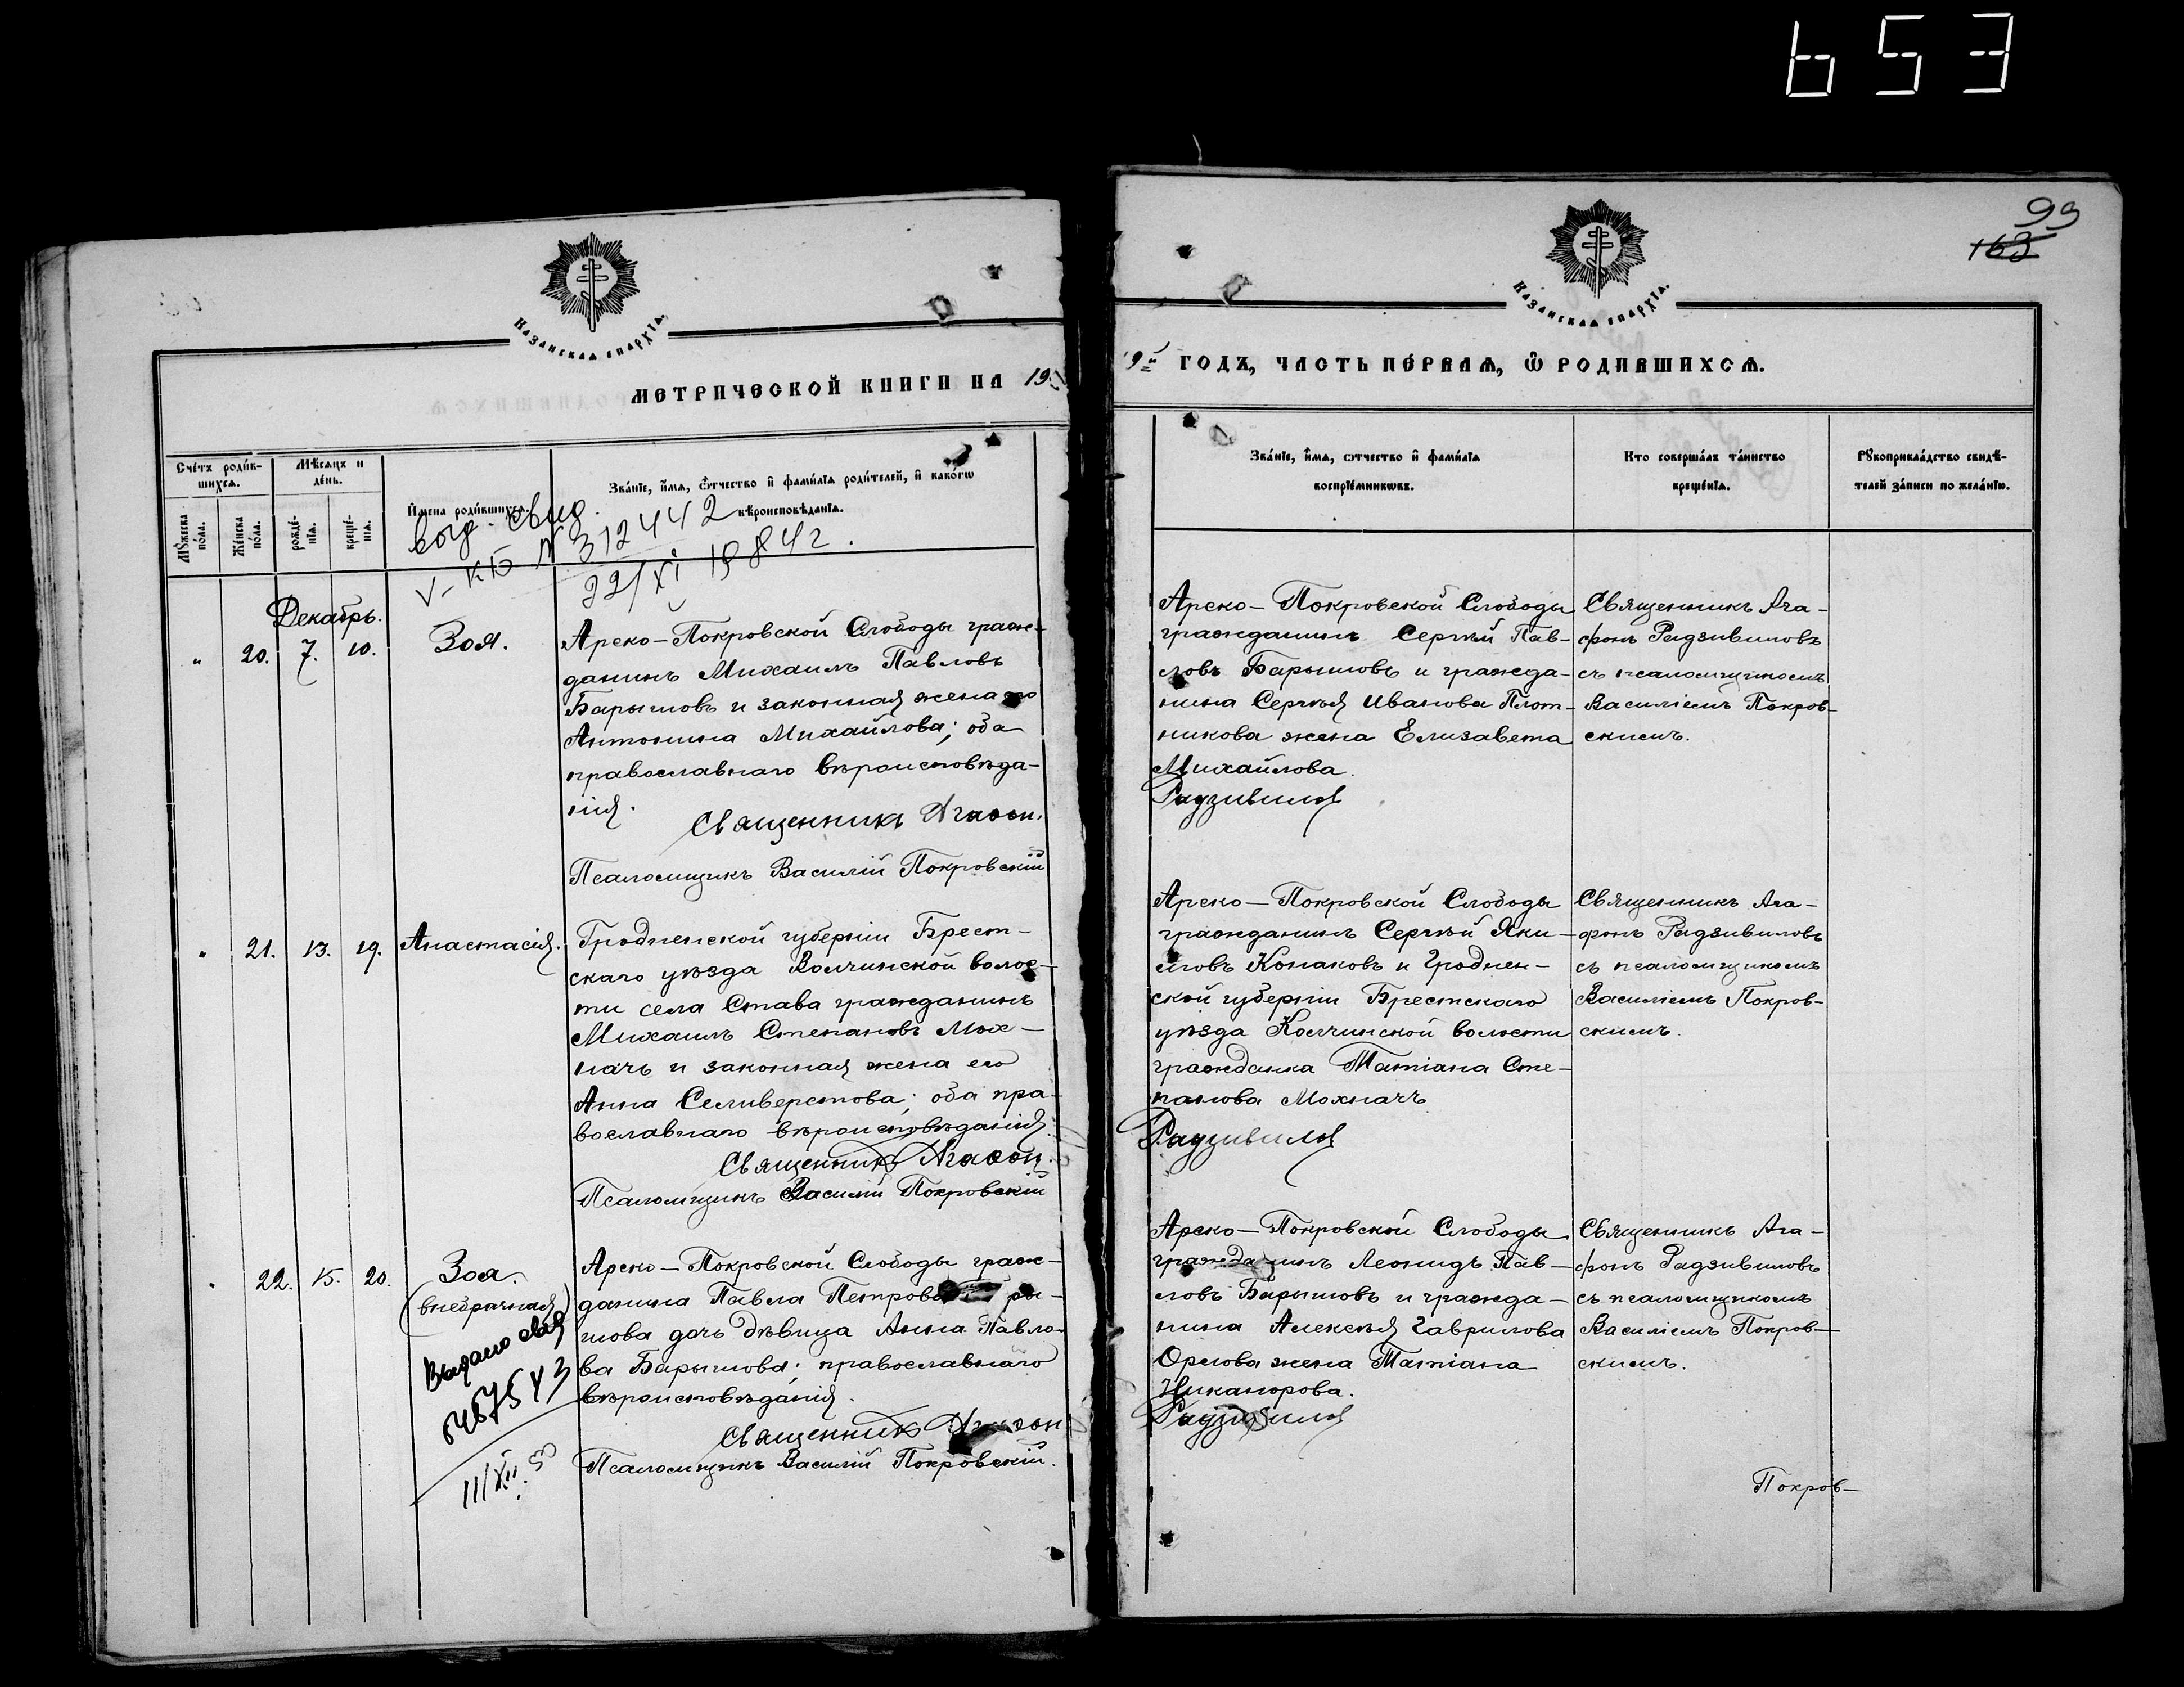 653
99
163
Казанская епархїа.
Казанская епархїа.
МЕТРИЧЕСКОЙ КНИГИ НА 19
19 ГОДЪ, ЧАСТЬ ПЕРВАѦ, Ѽ РОДИВШИХСѦ.
Сче́тъ роди́в-
шихсѧ.
Мѣ́сѧцъ и
де́нь.
Мꙋ́жеска
по́ла.
Же́нска
по́ла.
рожде́-
нїѧ.
креще́-
нїѧ.
И҆мена роди́вшихсѧ.
Зва́нїе, и҆́мѧ, ѻ҆́тчество и҆ фами́лїѧ роди́телей, и҆ како́гѡ
вѣроисповѣ́данїѧ.
Зва́нїе, и҆́мѧ, ѻ҆тчество и҆ фами́лїѧ
воспрїе́мникѡвъ.
Кто соверша́лъ та́инство
креще́нїѧ.
Рꙋкоприкла́дство свидѣ́-
телей за́писи по жела́нїю.
выд. свид.
V-КБ N 312442
22/XI 1984 г.
Декабрь.
" 20. 7. 10. Зоя.
Арско-Покровской Слободы граж-
данинъ Михаилъ Павловъ
Барышовъ и законная жена его
Антонина Михайлова; оба
православнаго вѣроисповѣда-
нія.
Священникъ Агафон.
Псаломщикъ Василій Покровскій
Арско-Покровской Слободы
гражданинъ Сергѣй Пав-
ловъ Барышовъ и гражда-
нина Сергѣя Иванова Плот-
никова жена Елизавета
Михайлова.
Радзивилов
Священникъ Ага-
фонъ Радзивиловъ
съ псаломщикомъ
Василіемъ Покров-
скимъ.
" 21. 13. 19. Анастасія.
Гродненской губерніи Брест-
скаго уѣзда Волчинской волос-
ти села Става гражданинъ
Михаилъ Степановъ Мох-
начъ и законная жена его
Анна Селиверстова; оба пра-
вославнаго вѣроисповѣданія.
Священникъ Агафон.
Псаломщикъ Василій Покровскій
Арско-Покровской Слободы
гражданинъ Сергѣй Яки-
мовъ Конаковъ и Гроднен-
ской губерніи Брестскаго
уѣзда Волчинской волости
гражданка Татіана Сте-
панова Мохначъ
Радзивилов
Священникъ Ага-
фонъ Радзивиловъ
съ псаломщикомъ
Василіемъ Покров-
скимъ.
" 22. 15. 20. Зоя.
(внебрачная)
Выдано
III/XII
Арско-Покровской Слободы граж-
данина Павла Петрова ры-
шова дочь дѣвица Анна Павло-
ва Барышова; православнаго
вѣроисповѣданія.
Священникъ Агафон
Псаломщикъ Василій Покровскій.
Арско-Покровской Слободы
гражданинъ Леонидъ Пав-
ловъ Барышовъ и гражда-
нина Алексѣя Гаврилова
Орлова жена Татіана
Никанорова.
Радзивилов
Священникъ Ага-
фонъ Радзивиловъ
съ псаломщикомъ
Василіемъ Покров-
скимъ.
Покров-